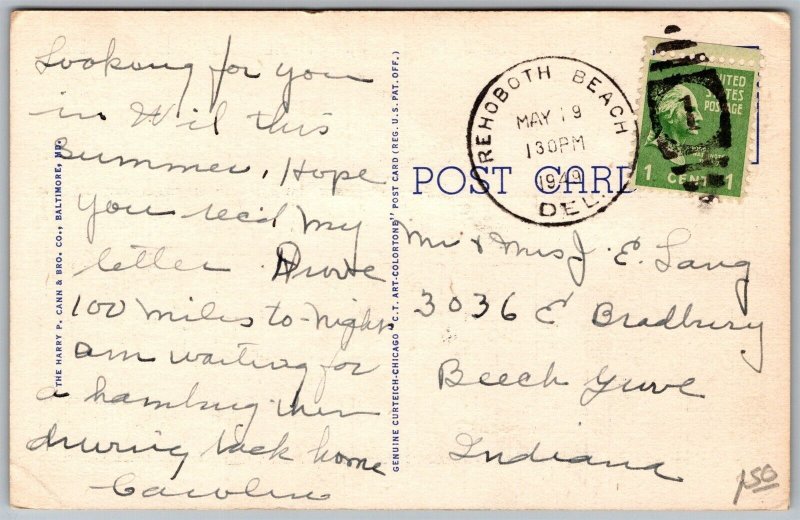 Looking for you
in Wil this
summer. Hope
you rec'd my
letter. Drove
100 miles to-night
am waiting for
a hamburg then
driving back home
Caroline
THE HARRY P. CANN & BRO. CO., BALTIMORE, MD.
GENUINE CURTEICH-CHICAGO "C.T. ART-COLORTONE" POST CARD (REG. U.S. PAT. OFF.)
REHOBOTH BEACH
MAY 19
1 30 PM
1949
DEL.
UNITED
STATES
POSTAGE
1 CENT 1
POST CARD
Mr & Mrs J. E. Lang
3036 E Bradbury
Beech Grove
Indiana
1.50